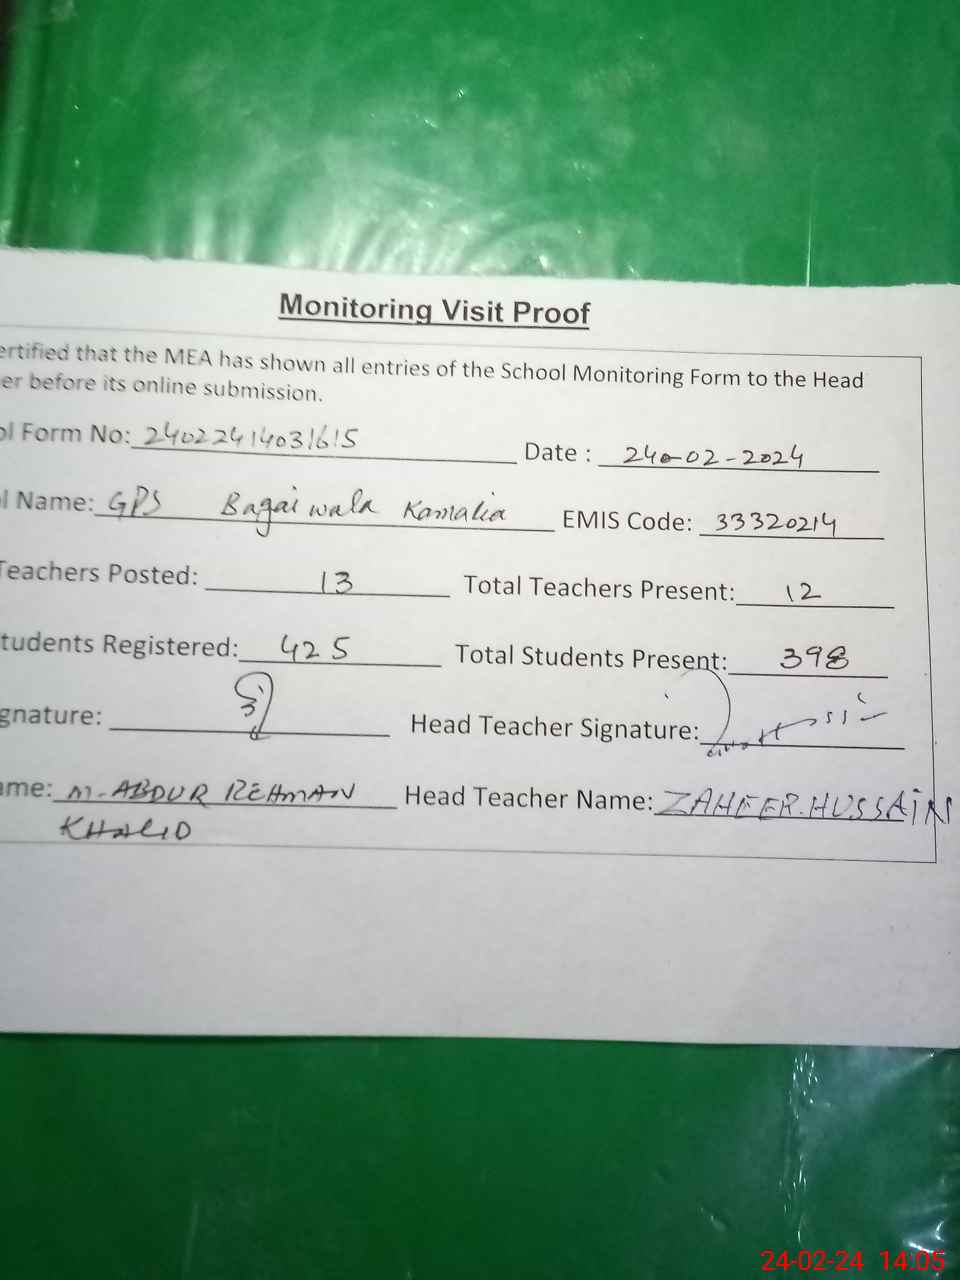 Monitoring Visit Proof
ertified that the MEA has shown all entries of the School Monitoring Form to the Head
er before its online submission.
ol Form No: 24022414031615 Date : 24-02-2024
l Name: GPS Bagai wala Kamalia EMIS Code: 33320214
Teachers Posted: 13 Total Teachers Present: 12
tudents Registered: 425 Total Students Present: 398
gnature: Head Teacher Signature:
ame: M-ABDUR REHMAN Head Teacher Name: ZAHEER.HUSSAIN
KHALID
24-02-24 14:05